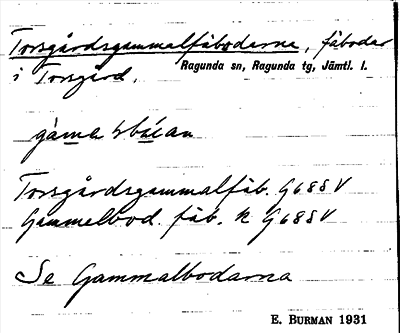 Torsgårdsgammalfäbodarna, fäbodar
i Torsgård. Ragunda sn, Ragunda tg, Jämtl. l.
Torsgårdsgammalfäb. G 68 S V
Gammelbod. fäb. K G 68 S V
Se Gammalbodarna
E. BURMAN 1931